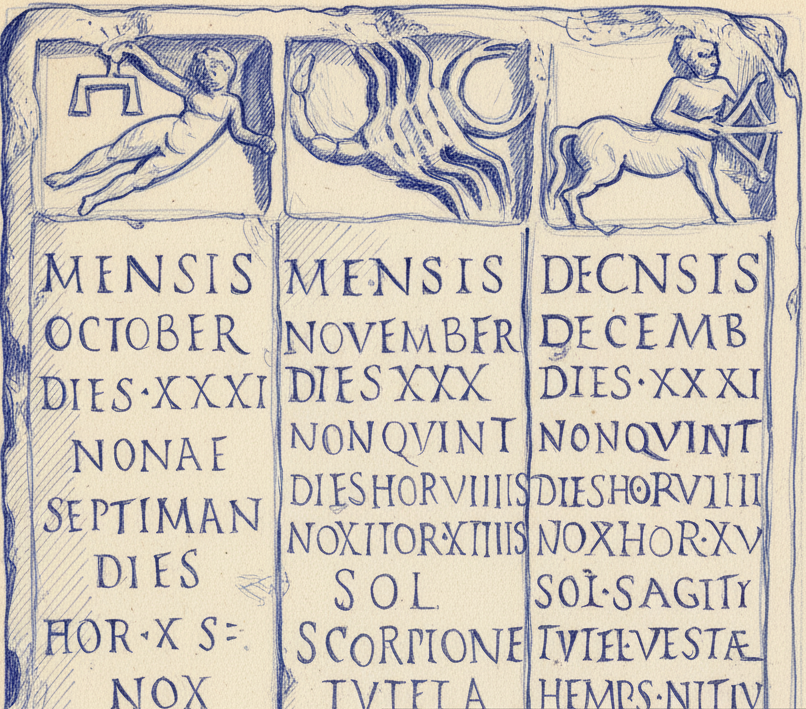 MENSIS
OCTOBER
DIES·XXXI
NONAE
SEPTIMAN
DIES
HOR·X S=
NOX
MENSIS
NOVEMBER
DIES XXX
NONQVINT
DIESHORVIIIIS
NOXITOR·XTIIIS
SOL
SCORPIONE
TVTELA
DECNSIS
DECEMB
DIES·XXXI
NONQVINT
DIESHORVIIII
NOXHOR·XV
SOL·SAGITY
TVTEL·VESTÆ
HEMPS·NITIV